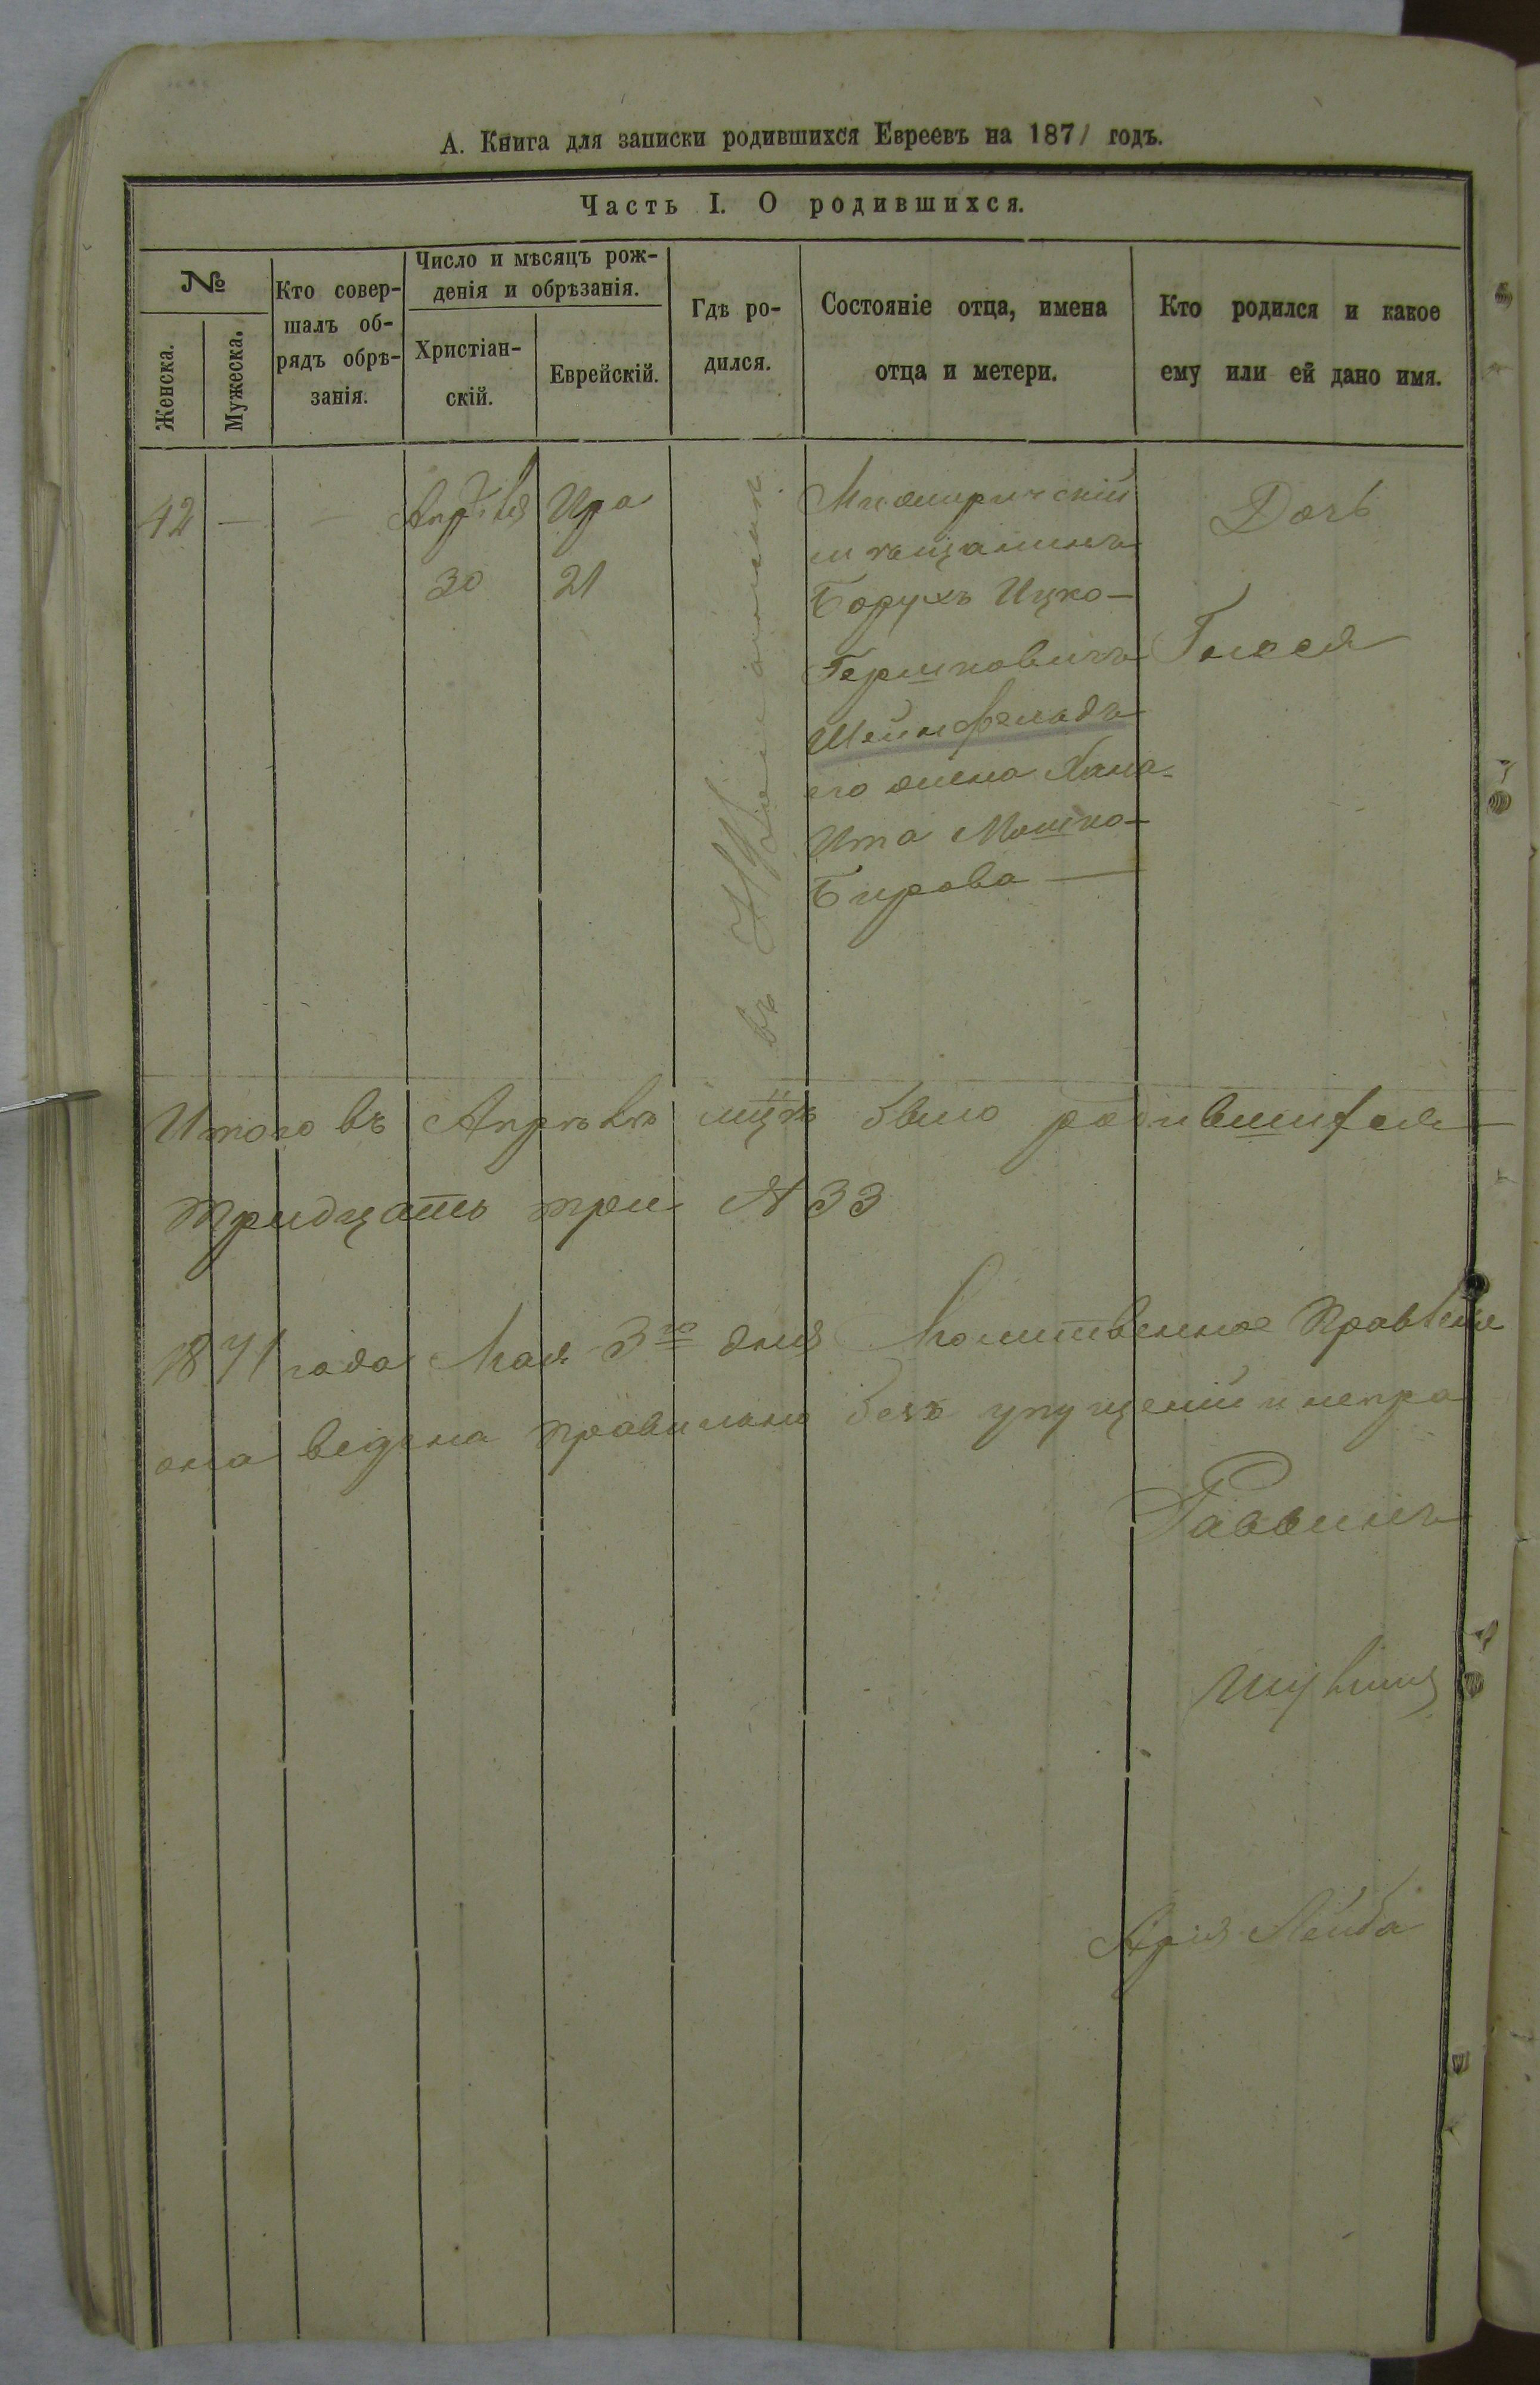 А. Книга для записки родившихся Евреевъ на 1871 годъ.
Часть I. О родившихся.
№
Женска.
Мужеска.
Кто совер-
шалъ об-
рядъ обрѣ-
занія.
Число и мѣсяцъ рож-
денія и обрѣзанія.
Христіан-
скій.
Еврейскій.
Гдѣ ро-
дился.
Состояніе отца, имена
отца и метери.
Кто родился и какое
ему или ей дано имя.
42 — —
Апрѣля
30
Ира
21
въ
мѣщанинъ
Борухъ Ицко-
Гершковичъ
Шейнфельдъ
его жена Хана-
Ита Мошко-
Бирова —
Дочь
Гися
Итого въ Апрѣлѣ мцѣ было родившихся
тридцать три № 33
1871 года Мая 3го дня Молитвенное Правленіе
она ведена правильно безъ упущеній и непра
Раввинъ
Арія Лейба